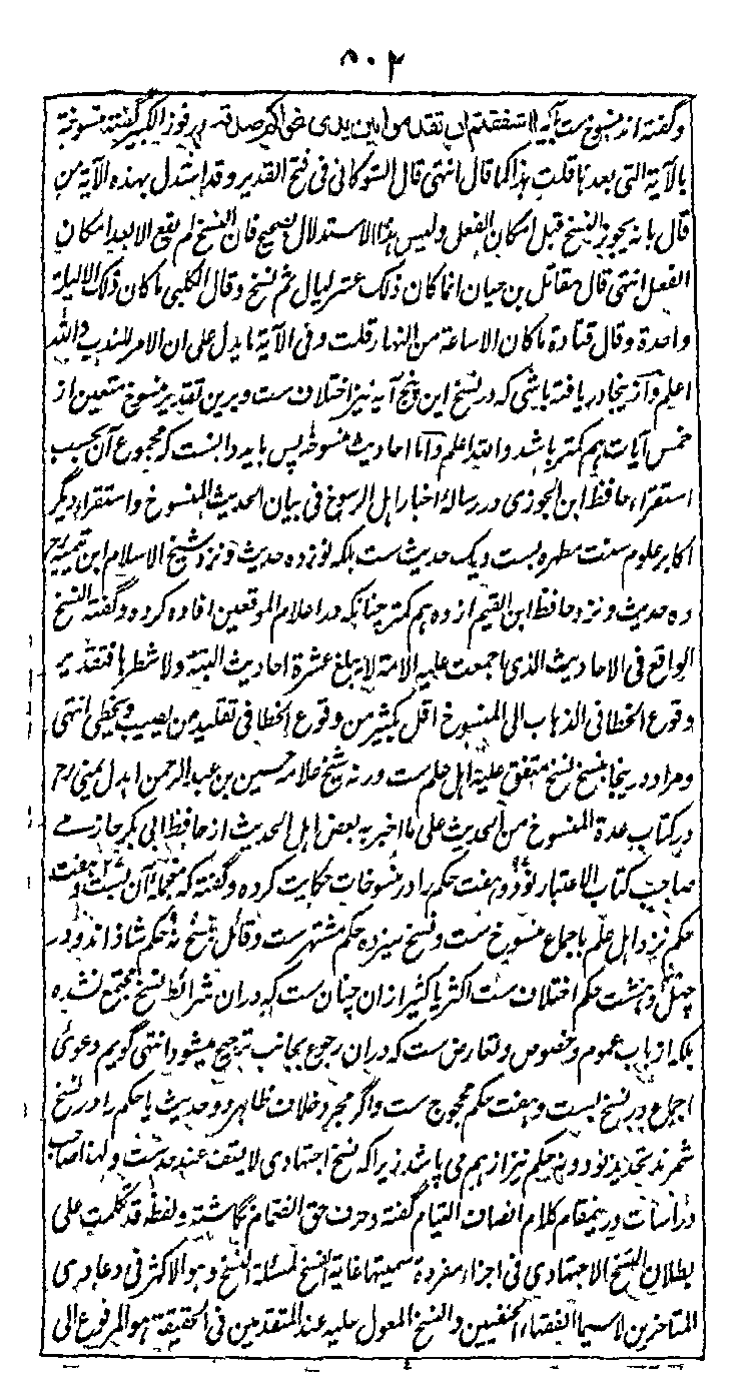 ۵۰۲
و گفته اند منسوخ ست آیه أأشفقتم ان تقدموا بین یدی نجواکم صدقت در فوز الکبیر گفته منسوخة
بالآیة التی بعدها قلت هذا کما قال انتهی قال الشوکانی فی فتح القدیر و قد استدل بهذه الآیة من
قال بانه یجوز النسخ قبل امکان الفعل و لیس هذا الاستدلال بصحیح فان النسخ لم یقع الا بعد امکان
الفعل انتهی قال مقاتل بن حیان انما کان ذلک عشر لیال ثم نسخ و قال الکلبی ما کان ذلک الا لیلة
واحدة و قال قتادة ما کان الا ساعة من النهار قلت و فی الآیة ما یدل علی ان الامر للندب و الله
اعلم و از ینجا دریافته باشی که در نسخ این پنج آیه نیز اختلاف ست و برین تقدیر منسوخ متعین از
خمس آیات هم کمتر باشد و الله اعلم و اما احادیث منسوخه پس باید دانست که مجموع آن بحسب
استقراء حافظ ابن الجوزی در رسالۀ اخبار اهل الرسوخ فی بیان الحدیث المنسوخ و استقراء دیگر
اکابر علوم سنت مطهره بست و یک حدیث ست بلکه نوزده حدیث و نزد شیخ الاسلام ابن تیمیه رح
ده حدیث و نزد حافظ ابن القیم از ده هم کمتر چنانکه در اعلام الموقعین افاده کرده و گفته النسخ
الواقع فی الاحادیث الذی اجمعت علیه الامة لا یبلغ عشرة احادیث البتة و لا شطرها فتقدیر
وقوع الخطا فی الذهاب الی المنسوخ اقل بکثیر من وقوع الخطا فی تقلید من یصیب و یخطی انتهی
و مراد درینجا بنسخ نسخ متفق علیه اهل علم ست ورنه شیخ علامه حسین بن عبد الرحمن اهدل یمنی رح
در کتاب عدة المنسوخ من الحدیث علی ما اخبر به بعض اهل الحدیث از حافظ ابی بکر حازمی
صاحب کتاب الاعتبار نود و هفت حکم را در منسوخات حکایت کرده و گفته که منجملۀ آن بست و هفت ۲۷
حکم نزد اهل علم باجماع منسوخ ست و نسخ سیزده حکم مشتهر ست و قائل بنسخ نه حکم شاذ اند و در
چهل و هشت حکم اختلاف ست اکثر یا کثیر ازان چنان ست که دران شرائط نسخ مجتمع نشده
بلکه از باب عموم و خصوص و تعارض ست که دران رجوع بجانب ترجیح میشود انتهی گویم دعوی
اجماع در نسخ بست و هفت حکم محجوج ست و اگر مجرد خلاف ظاهر دو حدیث یا حکم را در نسخ
شمرند تحدید نود و نه حکم نیز از هم می پاشد زیرا که نسخ اجتهادی لا یقف عند حد ست و لهذا صاحب
دراسات درینمقام کلام انصاف التیام گفته و حرف حق الفتمام نگاشته و لفظه قد تکلمت علی
بطلان النسخ الاجتهادی فی اجزاء مفردة سمیتها غایة النسخ لمسئلة النسخ و هو الاکثر فی دعاوی
المتاخرین لا سیما الفقهاء الحنفیین و النسخ المعول علیه عند المتقدمین فی الحقیقة هو المرفوع الی